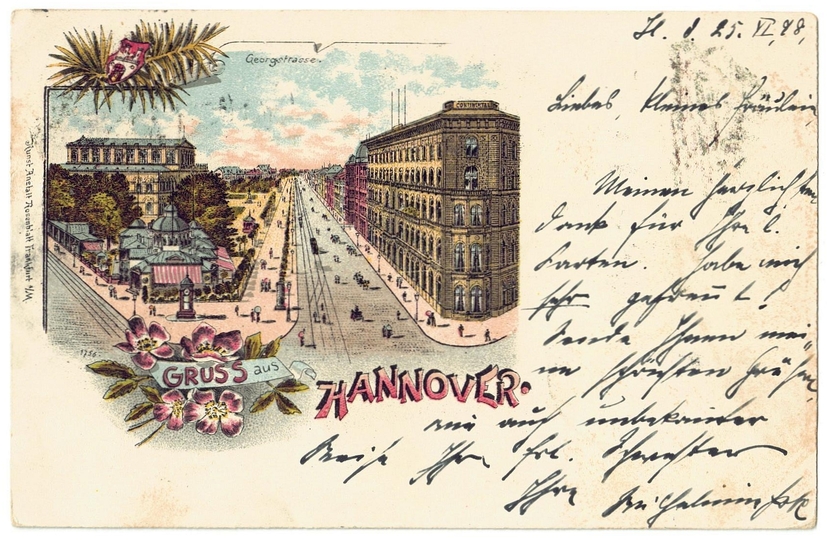 Georgstrasse.
CONTINENTAL
Kunst-Anstalt Rosenblatt Frankfurt a/M.
1756
GRUSS aus
HANNOVER.
H. d. 25. VI. 98.
Liebes, kleines Fräulein,
Meinen herzlichsten
Dank für Ihre l.
Karten. Habe mich
sehr gefreut!
Sende Ihnen mei
ne schönsten Grüße,
wie auch unbekannter
Weise Ihre Frl. Schwester
Ihre